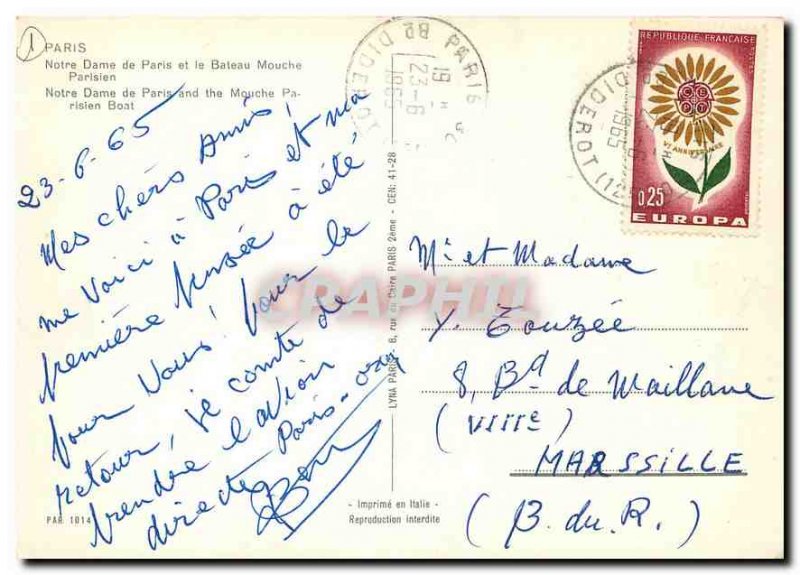 1 PARIS
Notre Dame de Paris et le Bateau Mouche
Parisien
Notre Dame de Paris and the Mouche Pa-
risien Boat
23-6-65
Mes chers Amis,
me voici à Paris et ma
première pensée a été
pour Vous! Pour le
retour, je compte de
prendre l'avion
directe Paris-
PAR 1014
LYNA PARIS - 8, rue du Caire PARIS 2ème - CEN: 41-28
- Imprimé en Italie -
Reproduction interdite
PARIS
Bd DIDEROT
19 H
23-6
1965
REPUBLIQUE FRANÇAISE
POSTES
CEPT
VE ANNIVERSAIRE
0,25
EUROPA
DIDEROT (12
1965
Mr et Madame
Y. Touzée
8, Bd de Maillane
(VIIIe)
MARSSILLE
(B. du. R.)
CRAPHIL